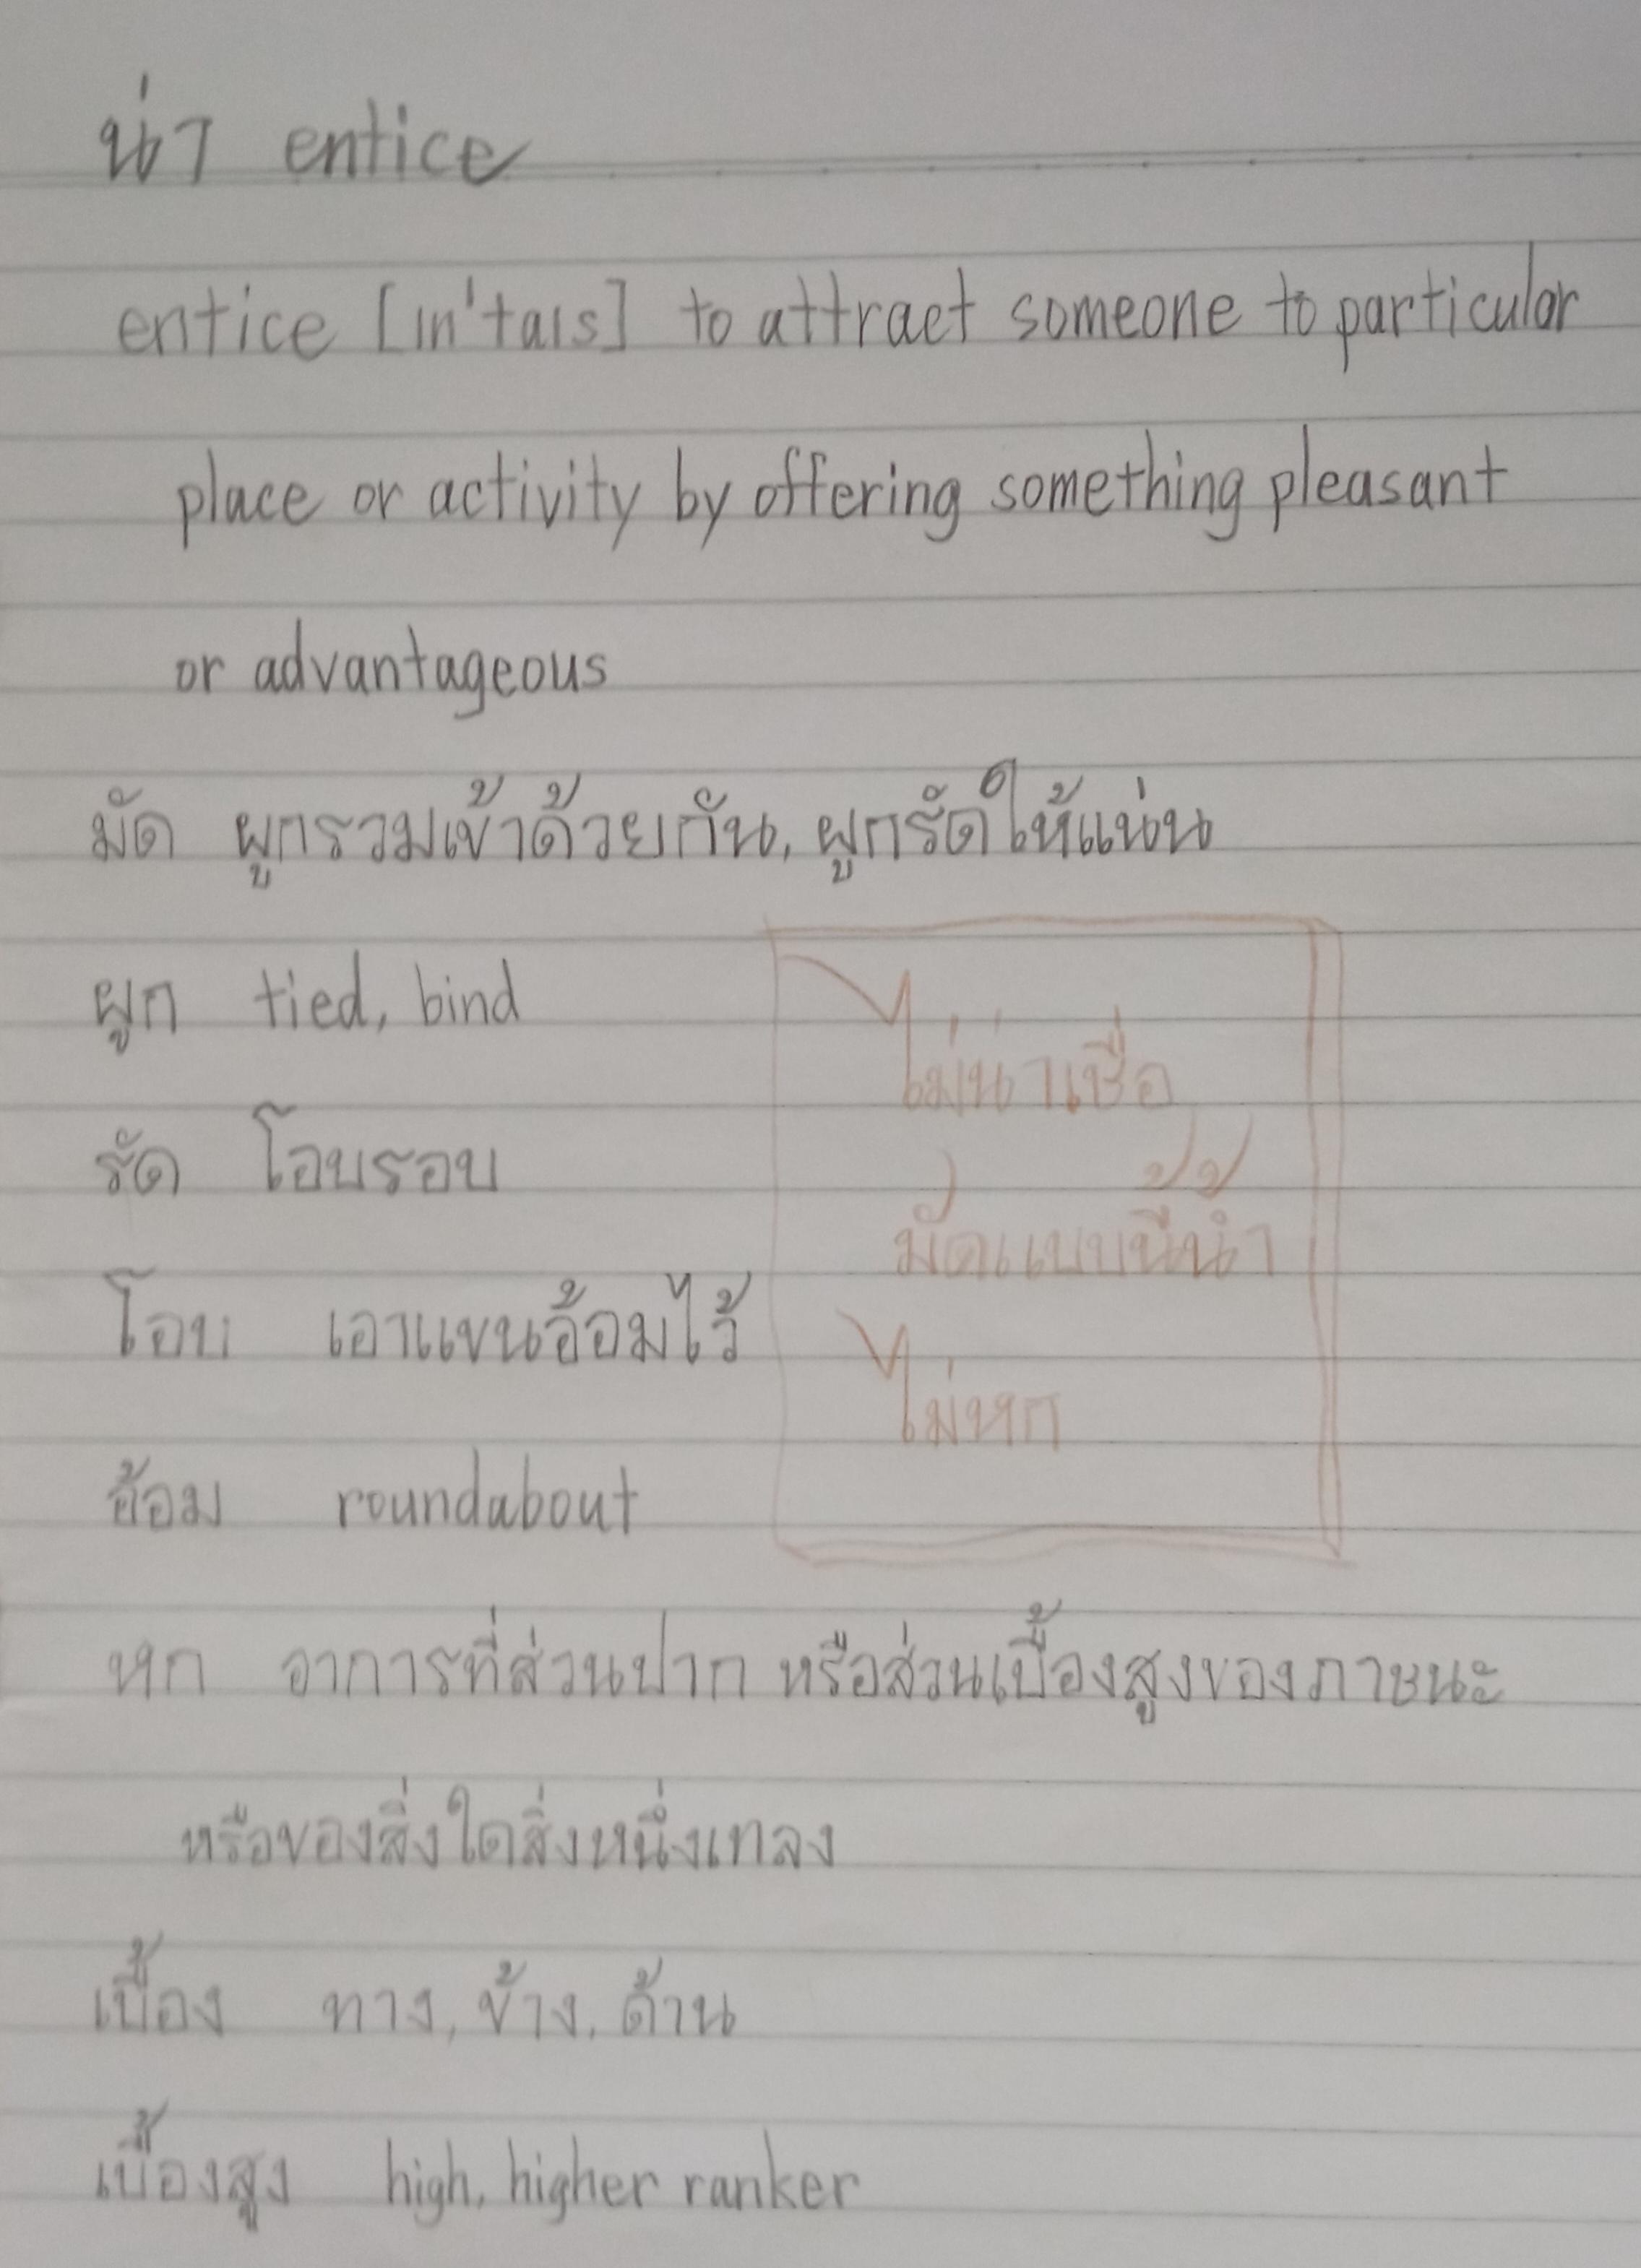 น่า entice
entice [ɪn'taɪs] to attract someone to particular
place or activity by offering something pleasant
or advantageous
มัด ผูกรวมเข้าด้วยกัน, ผูกรัดให้แน่น
ผูก tied, bind
ไม่น่าเชื่อ
รัด โอบรอบ
มัดแบบนี้น้ำ
โอบ เอาแขนอ้อมไว้
ไม่หก
อ้อม roundabout
หก อาการที่ส่วนปาก หรือส่วนเบื้องสูงของภาชนะ
หรือของสิ่งใดสิ่งหนึ่งเทลง
เบื้อง ทาง, ข้าง, ด้าน
เบื้องสูง high, higher ranker